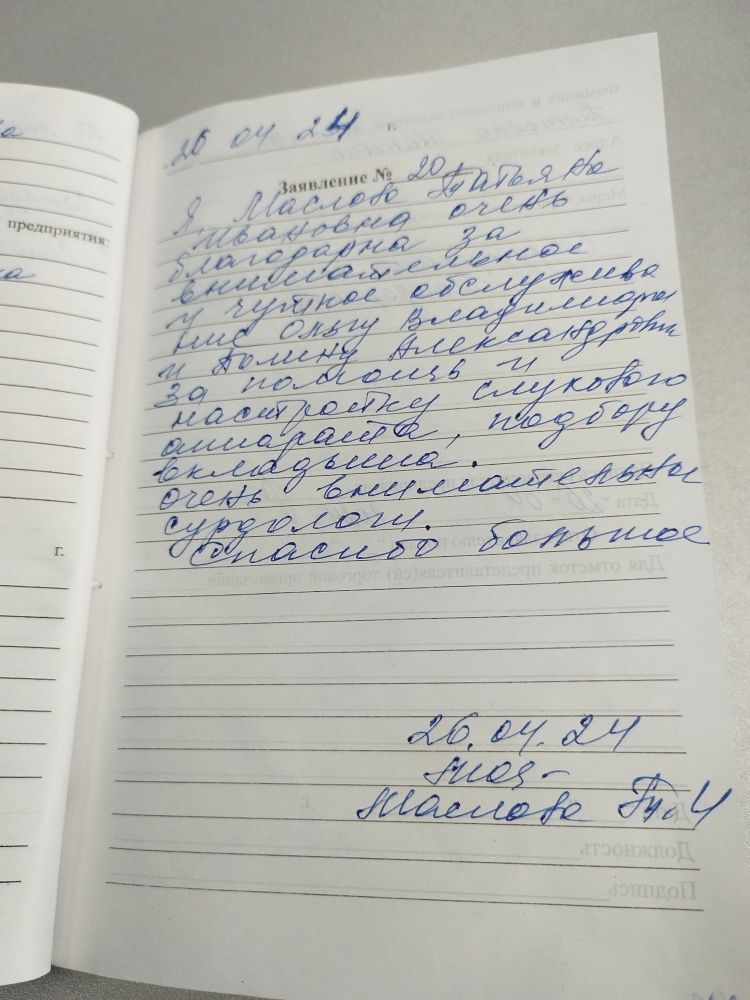 а
предприятия:
ка
г.
26 04 24 г.
Заявление № 20
Я, Маслова Татьяна
Ивановна очень
благодарна за
внимательное
и чуткое обслужива
ние Ольгу Владимировну
и Полину Александровну
за помощь и
настройку слухового
аппарата, подбору
вкладыша.
очень внимательны
сурдологи.
Спасибо большое
Для отметок представителя(ей) торговой организации
26.04.24
Маслова Т.И
Должность
Подпись